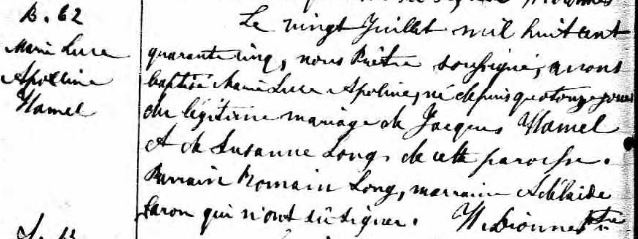 B. 62
Marie Luce
Apolline
Hamel
Le vingt Juillet mil huit cent
quarante cinq, nous Prêtre soussigné, avons
baptisé Marie Luce Apoline, né depuis quatorze jours
du légitime mariage de Jacques Hamel
et de Susanne Long, de cette paroisse.
Parrain Romain Long, marraine Adélaide
Caron qui n'ont sû signer. N. Dionne ptre